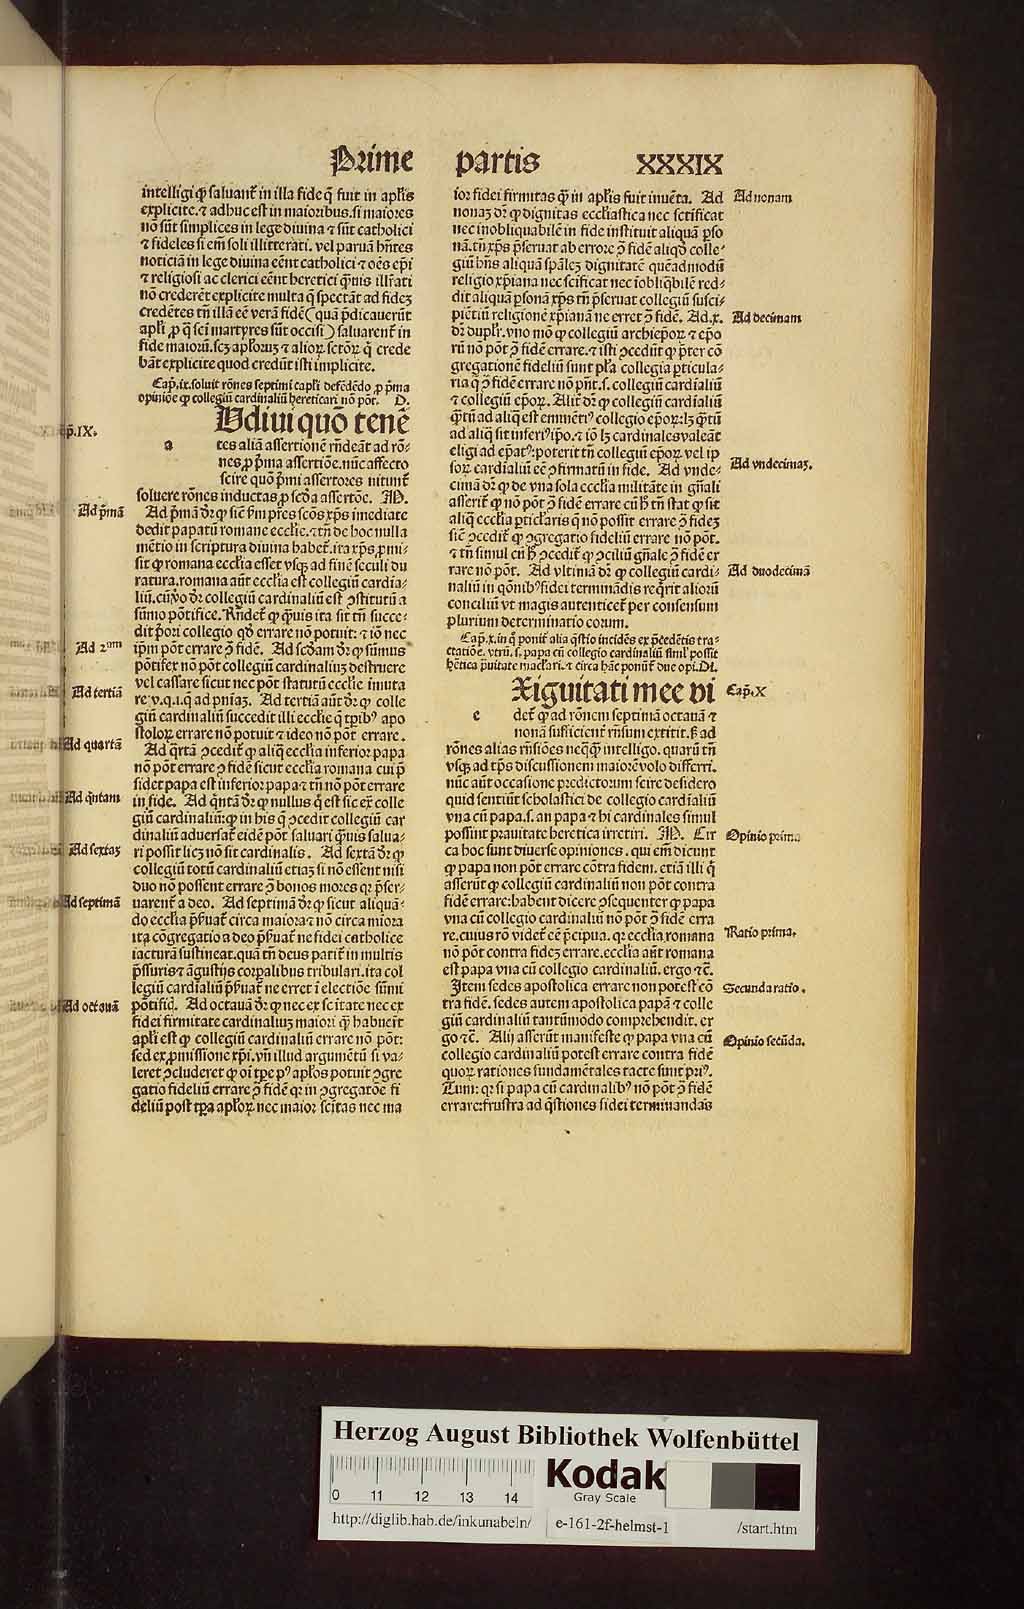 Prime partis XXXIX
intelligi ꝙ saluant̉ in illa fide q̃ fuit in apl̓is
explicite. ⁊ adhuc est in maioribus. si maiores
nõ sũt simplices in lege diuina ⁊ sũt catholici
⁊ fideles si em̃ soli illitterati. vel paruã hñtes
noticiã in lege diuina eẽnt catholici ⁊ oẽs ep̃i
⁊ religiosi ac clerici eẽnt heretici q̃uis illr̃ati
nõ crederẽt explicite multa q̃ spectãt ad fidez
credẽtes tñ illã eẽ verã fidẽ (quã p̃dicauerũt
apl̓i ꝓ q̃ sci martyres sũt occisi) saluarent̉ in
fide maioruꝫ. scꝫ apl̓oruꝫ ⁊ alioꝝ sctõꝝ q̃ crede
bãt explicite quod credũt isti implicite.
Cap̃. ix. soluit rõnes septimi capl̓i defẽdẽdo ꝓ p̃ma
opiniõe ꝙ collegiũ cardinaliũ hereticari nõ põt. D.
Udiui quõ tenẽ
a
tes aliã assertionẽ r̃ndeãt ad rõ-
nes ꝓ p̃ma assertiõe. nũc affecto
scire quõ p̃mi assertores nitunt̉
soluere rõnes inductas ꝓ scd̃a assertõe. M.
Ad p̃mã dr̃ ꝙ sic̃ bm̃ pres scõs xp̃s imediate
dedit papatũ romane eccl̓ie. ⁊ tñ de hoc nulla
mẽtio in scriptura diuina habet̉. ita xp̃s ꝓmi-
sit ꝙ romana eccl̓ia esset vsqꝫ ad finẽ seculi du
ratura. romana aũt eccl̓ia est collegiũ cardia-
liũ. cũ v̓o dr̃ collegiũ cardinaliũ est ꝯstitutũ a
sũmo põtifice. Rñdet̉ ꝙ q̃uis ita sit tñ succe-
dit p̃ori collegio qd̃ errare nõ potuit: ⁊ iõ nec
ip̃m põt errare ꝯ̃ fidẽ. Ad scd̃am dr̃ ꝙ sũmus
põtifex nõ põt collegiũ cardinaliuꝫ destruere
vel cassare sicut nec põt statutũ eccl̓ie imuta
re. v. q. i. q̃ ad pniaꝫ. Ad tertiã aũt dr̃ ꝙ colle
giũ cardinaliũ succedit illi eccl̓ie q̃ tꝑib⁹ apo
stoloꝝ errare nõ potuit ⁊ ideo nõ põt errare.
Ad q̃rtã ꝯcedit̉ ꝙ aliq̃ eccl̓ia inferior papa
nõ põt errare ꝯ̃ fidẽ sicut eccl̓ia romana cui p̃
sidet papa est inferior papa ⁊ tñ nõ põt errare
in fide. Ad q̃ntã dr̃ ꝙ nullus q̃ est sic ex̃ colle
giũ cardinaliũ: ꝙ in his q̃ ꝯcedit collegiũ car
dinaliũ aduersat̉ eidẽ põt saluari q̃uis salua-
ri possit licꝫ nõ sit cardinalis. Ad sextã dr̃ ꝙ
collegiũ totũ cardinaliũ etiaꝫ si nõ essent nisi
duo nõ possent errare ꝯ̃ bonos mores qꝛ p̃ser-
uarent̉ a deo. Ad septimã dr̃ ꝙ sicut aliquã-
do eccl̓ia p̃suat̉ circa maiora ⁊ nõ circa miora
ita cõgregatio a deo p̃suat̉ ne fidei catholice
iacturã sustineat. quã tñ deus patit̉ in multis
p̃ssuris ⁊ ãgustijs corꝑalibus tribulari. ita col
legiũ cardialiũ p̃suat̉ ne erret ĩ electiõe sũmi
põtifici. Ad octauã dr̃ ꝙ nec ex scĩtate nec ex
fidei firmitate cardinaliuꝫ maiori q̃ habuerit
apl̓i est ꝙ collegiũ cardinaliũ errare nõ põt:
sed ex ꝓmissione xp̃i. vñ illud argumẽtũ si va-
leret ꝯcluderet ꝙ oĩ tꝑe p⁹ apl̓os potuit ꝯgre
gatio fideliũ errare ꝯ̃ fidẽ qꝛ in ꝯgregatõe fi
deliũ post tꝑa apl̓oꝝ nec maior scĩtas nec ma
Cap̃. IX.
Ad p̃mã
Ad 2ᵃᵐ
Ad tertiã
Ad quartã
Ad q̃ntam
Ad sextaꝫ
Ad septimã
Ad octauã
ior fidei firmitas q̃ in apl̓is fuit inuẽta. Ad
nonaꝫ dr̃ ꝙ dignitas eccl̓iastica nec sctificat
nec inobliquabilẽ in fide instituit aliquã ꝑso
nã. tñ xp̃s p̃seruat ab errore ꝯ̃ fidẽ aliqd̃ colle-
giũ hñs aliquã sp̃aleꝫ dignitatẽ quẽadmodũ
religio xp̃iana nec scificat nec iobliq̃bilẽ red-
dit aliquã ꝑsonã xp̃s tñ p̃seruat collegiũ susci-
piẽtiũ religionẽ xp̃ianã ne erret ꝯ̃ fidẽ. Ad. x.
dr̃ duplr̃. vno mõ ꝙ collegiũ archiep̃oꝝ ⁊ ep̃o
rũ nõ põt ꝯ̃ fidẽ errare. ⁊ isti ꝯcedũt ꝙ p̃ter cõ
gregationẽ fideliũ sunt pl̓a collegia ꝑticula-
ria q̃ ꝯ̃ fidẽ errare nõ pñt. s. collegiũ cardialiũ
⁊ collegiũ ep̃oꝝ. Alit̉ dr̃ ꝙ collegiũ cardialiũ
q̃tũ ad aliq̃ est eminẽti⁹ collegio ep̃oꝝ: lꝫ q̃tũ
ad aliq̃ sit inferi⁹ ip̃o. ⁊ iõ lꝫ cardinales valeãt
eligi ad ep̃at⁹: poterit tñ collegiũ ep̃oꝝ vel ip
soꝝ cardialiũ eẽ ꝯfirmatũ in fide. Ad vnde-
cimã dr̃ ꝙ de vna sola eccl̓ia militãte in gñali
asserit̉ ꝙ nõ põt ꝯ̃ fidẽ errare cũ h̃ tñ stat ꝙ sit
aliq̃ eccl̓ia ꝑticl̓aris q̃ nõ possit errare ꝯ̃ fideꝫ
sic̃ ꝯcedit̉ ꝙ ꝯgregatio fideliũ errare nõ põt.
⁊ tñ simul cũ h̃ ꝯcedit̉ ꝙ ꝯciliũ gñale ꝯ̃ fidẽ er
rare nõ põt. Ad vltimã dr̃ ꝙ collegiũ cardi-
naliũ in q̃õnib⁹ fidei terminãdis req̃rit alioru
conciliũ vt magis autenticet̉ per consensum
plurium determinatio eorum.
Cap̃. x. in q̃ ponit̉ alia q̃stio incidẽs ex p̃cedẽtis tra-
ctatiõe. vtrũ. s. papa cũ collegio cardinaliũ simĺ possit
h̓etica p̃uitate macl̓ari. ⁊ circa hãc ponũt̉ due opi. Di.
Xiguitati mee vi
e
det̉ ꝙ ad rõnem septimã octauã ⁊
nonã sufficient̉ rñsum extitit. sꝫ ad
rõnes alias rñsiões neq̃q̃ intelligo. quarũ tñ
vsqꝫ ad tp̃s discussionem maiorẽ volo differri.
nũc aũt occasione predictorum scire desidero
quid sentiũt scholastici de collegio cardialiũ
vna cũ papa. s. an papa ⁊ hi cardinales simul
possint prauitate heretica irretiri. M. Cir
ca hoc sunt diuerse opiniones. qui em̃ dicunt
ꝙ papa non põt errare cõtra fidem. etiã illi q̃
asserũt ꝙ collegiũ cardinaliũ non põt contra
fidẽ errare: habent dicere ꝯsequenter ꝙ papa
vna cũ collegio cardinaliũ nõ põt ꝯ̃ fidẽ erra
re. cuius rõ videt̉ eẽ p̃cipua. qꝛ eccl̓ia romana
nõ põt contra fideꝫ errare. eccl̓ia aũt romana
est papa vna cũ collegio cardinaliũ. ergo ⁊c̃.
Item sedes apostolica errare non potest cõ
tra fidẽ. sedes autem apostolica papã ⁊ colle
giũ cardinaliũ tantũmodo comprehendit. er
go ⁊c̃. Alij asserũt manifeste ꝙ papa vna cũ
collegio cardinaliũ potest errare contra fidẽ
quoꝝ rationes fundamẽtales tacte sunt pri⁹.
Tum: qꝛ si papa cũ cardinalib⁹ nõ põt ꝯ̃ fidẽ
errare: frustra ad q̃stiones fidei terminandas
Ad nonam
Ad decimam
Ad vndecimaꝫ.
Ad duodecimã
Cap̃. X
Opinio prima
Ratio prima.
Secunda ratio.
Opinio secũda.
Herzog August Bibliothek Wolfenbüttel
0 11 12 13 14
Kodak
Gray Scale
http://diglib.hab.de/inkunabeln/ e-161-2f-helmst-1 /start.htm